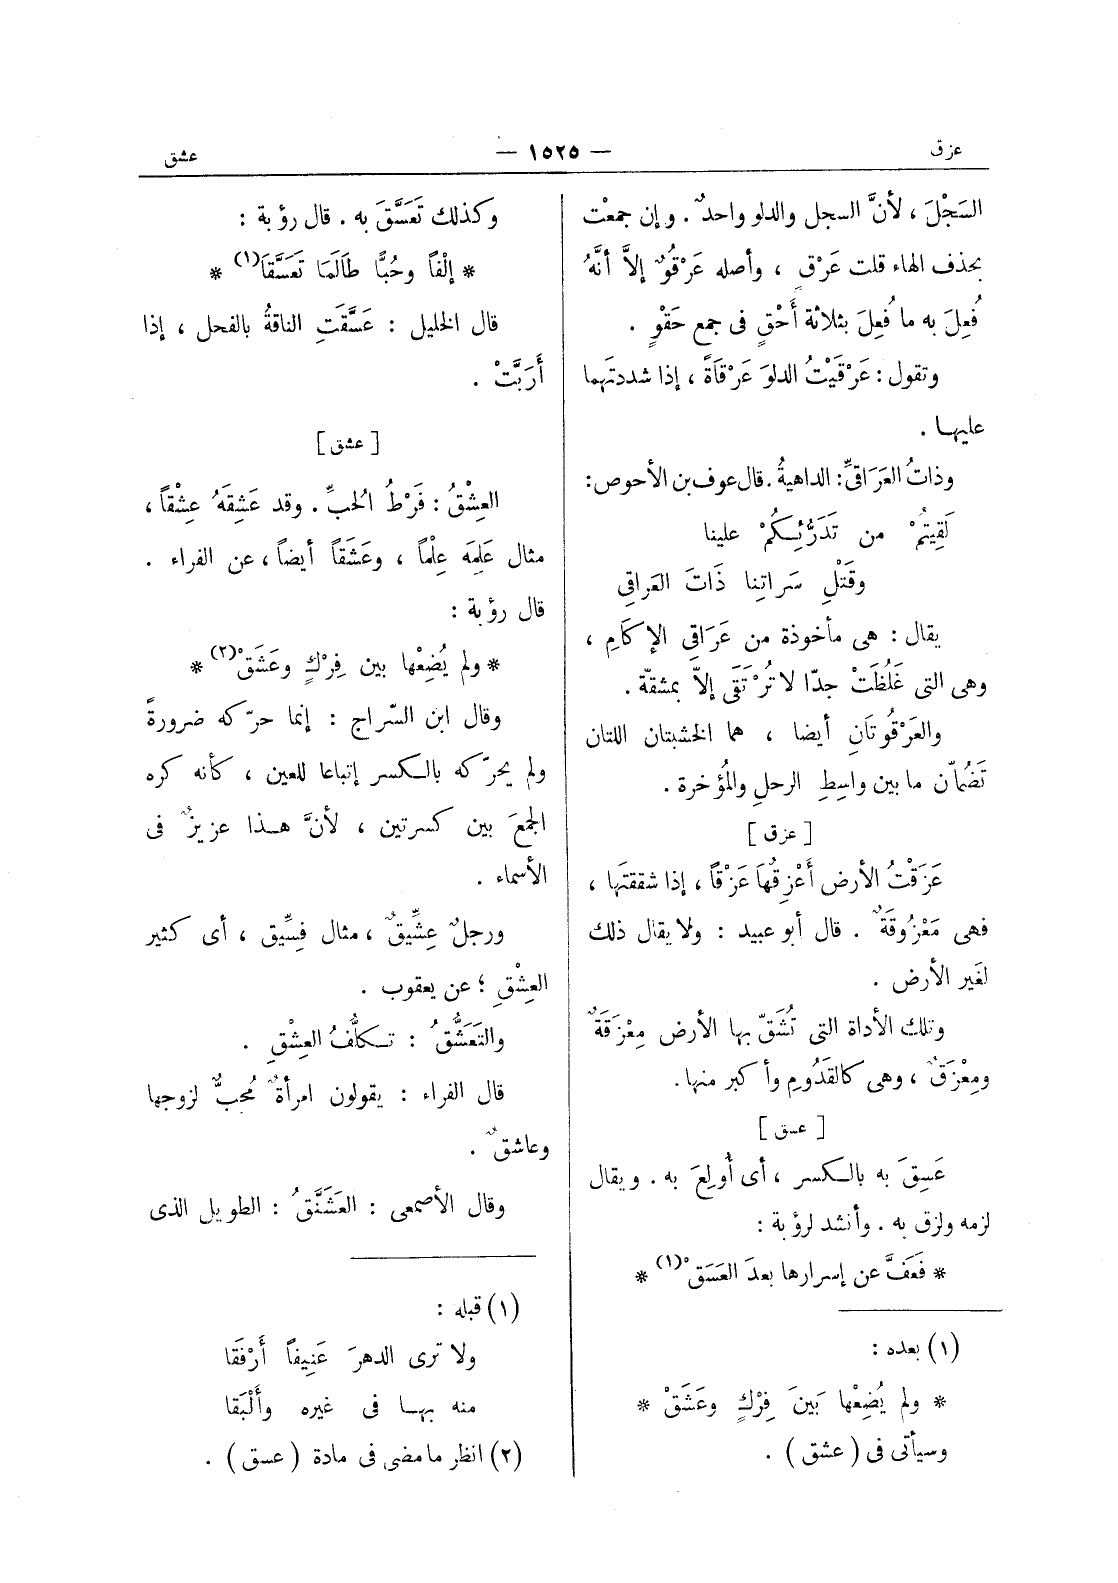 عزق
— ١٥٢٥ —
عشق
السَجْلَ ، لأنَّ السجل والدلو واحدٌ . وإن جمعْت
بحذف الهاء قلت عَرْقٍ ، وأصله عَرْقُوٌ إلاَّ أنَّهُ
فُعِلَ به ما فُعِلَ بثلاثة أَحْقٍ فى جمع حَقْوٍ .
وتقول : عَرْقَيْتُ الدلوَ عَرْقَاةً ، إذا شددتَهما
عليها .
وذاتُ العَرَاقىِّ : الداهيةُ . قال عوف بن الأحوص :
لَقِيتُمْ من تَدَرُّئِكُمْ علينا
وقَتْلِ سَراتِنا ذَاتَ العَراقِى
يقال : هى مأخوذة من عَرَاقِى الإكَامِ ،
وهى التى غَلُظَتْ جدّا لا تُرْتَقَى إلاّ بمشقّة .
والعَرْقُوتَانِ أيضا ، هما الخشبتان اللتان
تَضُمّان ما بين واسِطِ الرحلِ والمُؤخرة .
[ عزق ]
عَزَقْتُ الأرض أَعْزِقُهَا عَزْقاً ، إذا شققتَها ،
فهى مَعْزُوقَةٌ . قال أبو عبيد : ولا يقال ذلك
لغَير الأرض .
وتلك الأداة التى تُشَقّ بها الأرض مِعْزَقَةٌ
ومِعْزَقٌ ، وهى كالقَدُومِ وأكبر منها .
[ عسق ]
عَسِقَ به بالكسر ، أى أُولِعَ به . ويقال
لزمه ولزق به . وأنشد لرؤبة :
* فَعَفَّ عن إسرارها بعدَ العَسَقْ(١) *
(١) بعده :
* ولم يُضِعْها بَينَ فِرْكٍ وعَشَقْ *
وسيأتى فى ( عشق ) .
وكذلك تَعَسَّقَ به . قال رؤبة :
* إلْفاً وحُبًّا طَالَمَا تَعَسَّقَا(١) *
قال الخليل : عَسَّقَتِ الناقةُ بالفحل ، إذا
أَرَبَّتْ .
[ عشق ]
العِشْقُ : فَرْطُ الحبِّ . وقد عَشِقَهُ عِشْقاً ،
مثال عَلِمَه عِلْماً ، وعَشَقاً أيضاً ، عن الفراء .
قال رؤبة :
* ولم يُضِعْها بين فِرْكٍ وعَشَقْ(٢) *
وقال ابن السّراج : إنما حرّكه ضرورةً
ولم يحرّكه بالكسر إتباعا للعين ، كأنه كره
الجمعَ بين كسرتين ، لأنَّ هذا عزيزٌ فى
الأسماء .
ورجلٌ عِشِّيقٌ ، مثال فسِّيق ، أى كثير
العِشْقِ ؛ عن يعقوب .
والتَعَشُّقُ : تكلُّفُ العِشْقِ .
قال الفراء : يقولون امرأةٌ مُحبٌّ لزوجها
وعاشقٌ .
وقال الأصمعى : العَشَنَّقُ : الطويل الذى
(١) قبله :
ولا ترى الدهرَ عَنِيفاً أَرْفَقَا
منه بها فى غيره وأَلْبَقا
(٢) انظر ما مضى فى مادة ( عسق ) .